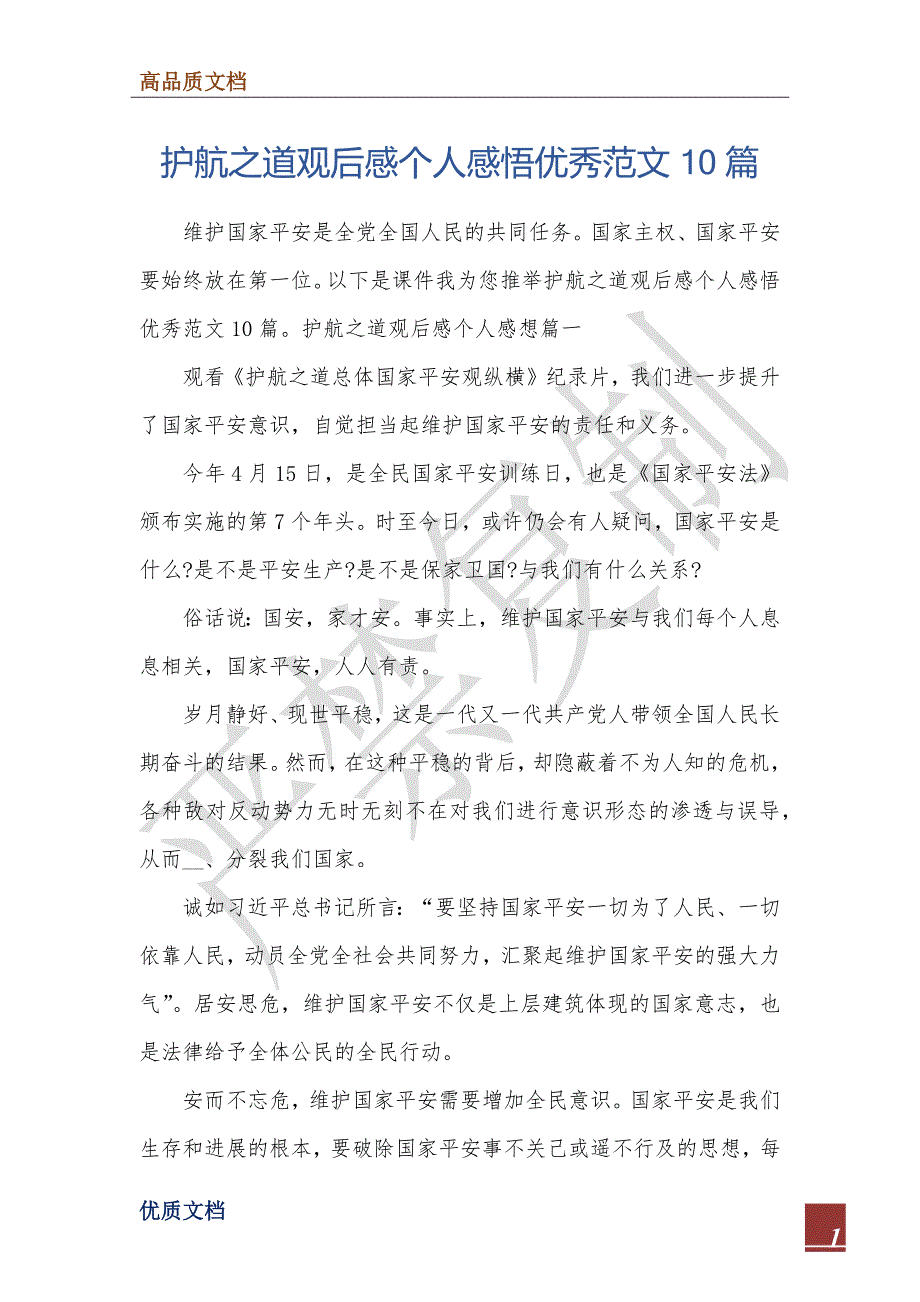 高品质文档
护航之道观后感个人感悟优秀范文 10 篇
维护国家平安是全党全国人民的共同任务。国家主权、国家平安
要始终放在第一位。以下是课件我为您推举护航之道观后感个人感悟
优秀范文 10 篇。护航之道观后感个人感想篇一
观看《护航之道总体国家平安观纵横》纪录片，我们进一步提升
了国家平安意识，自觉担当起维护国家平安的责任和义务。
今年 4 月 15 日，是全民国家平安训练日，也是《国家平安法》
颁布实施的第 7 个年头。时至今日，或许仍会有人疑问，国家平安是
什么?是不是平安生产?是不是保家卫国?与我们有什么关系?
俗话说：国安，家才安。事实上，维护国家平安与我们每个人息
息相关，国家平安，人人有责。
岁月静好、现世平稳，这是一代又一代共产党人带领全国人民长
期奋斗的结果。然而，在这种平稳的背后，却隐蔽着不为人知的危机，
各种敌对反动势力无时无刻不在对我们进行意识形态的渗透与误导，
从而__、分裂我们国家。
诚如习近平总书记所言：“要坚持国家平安一切为了人民、一切
依靠人民，动员全党全社会共同努力，汇聚起维护国家平安的强大力
气”。居安思危，维护国家平安不仅是上层建筑体现的国家意志，也
是法律给予全体公民的全民行动。
安而不忘危，维护国家平安需要增加全民意识。国家平安是我们
生存和进展的根本，要破除国家平安事不关己或遥不行及的思想，每
严禁复制
优质文档
1